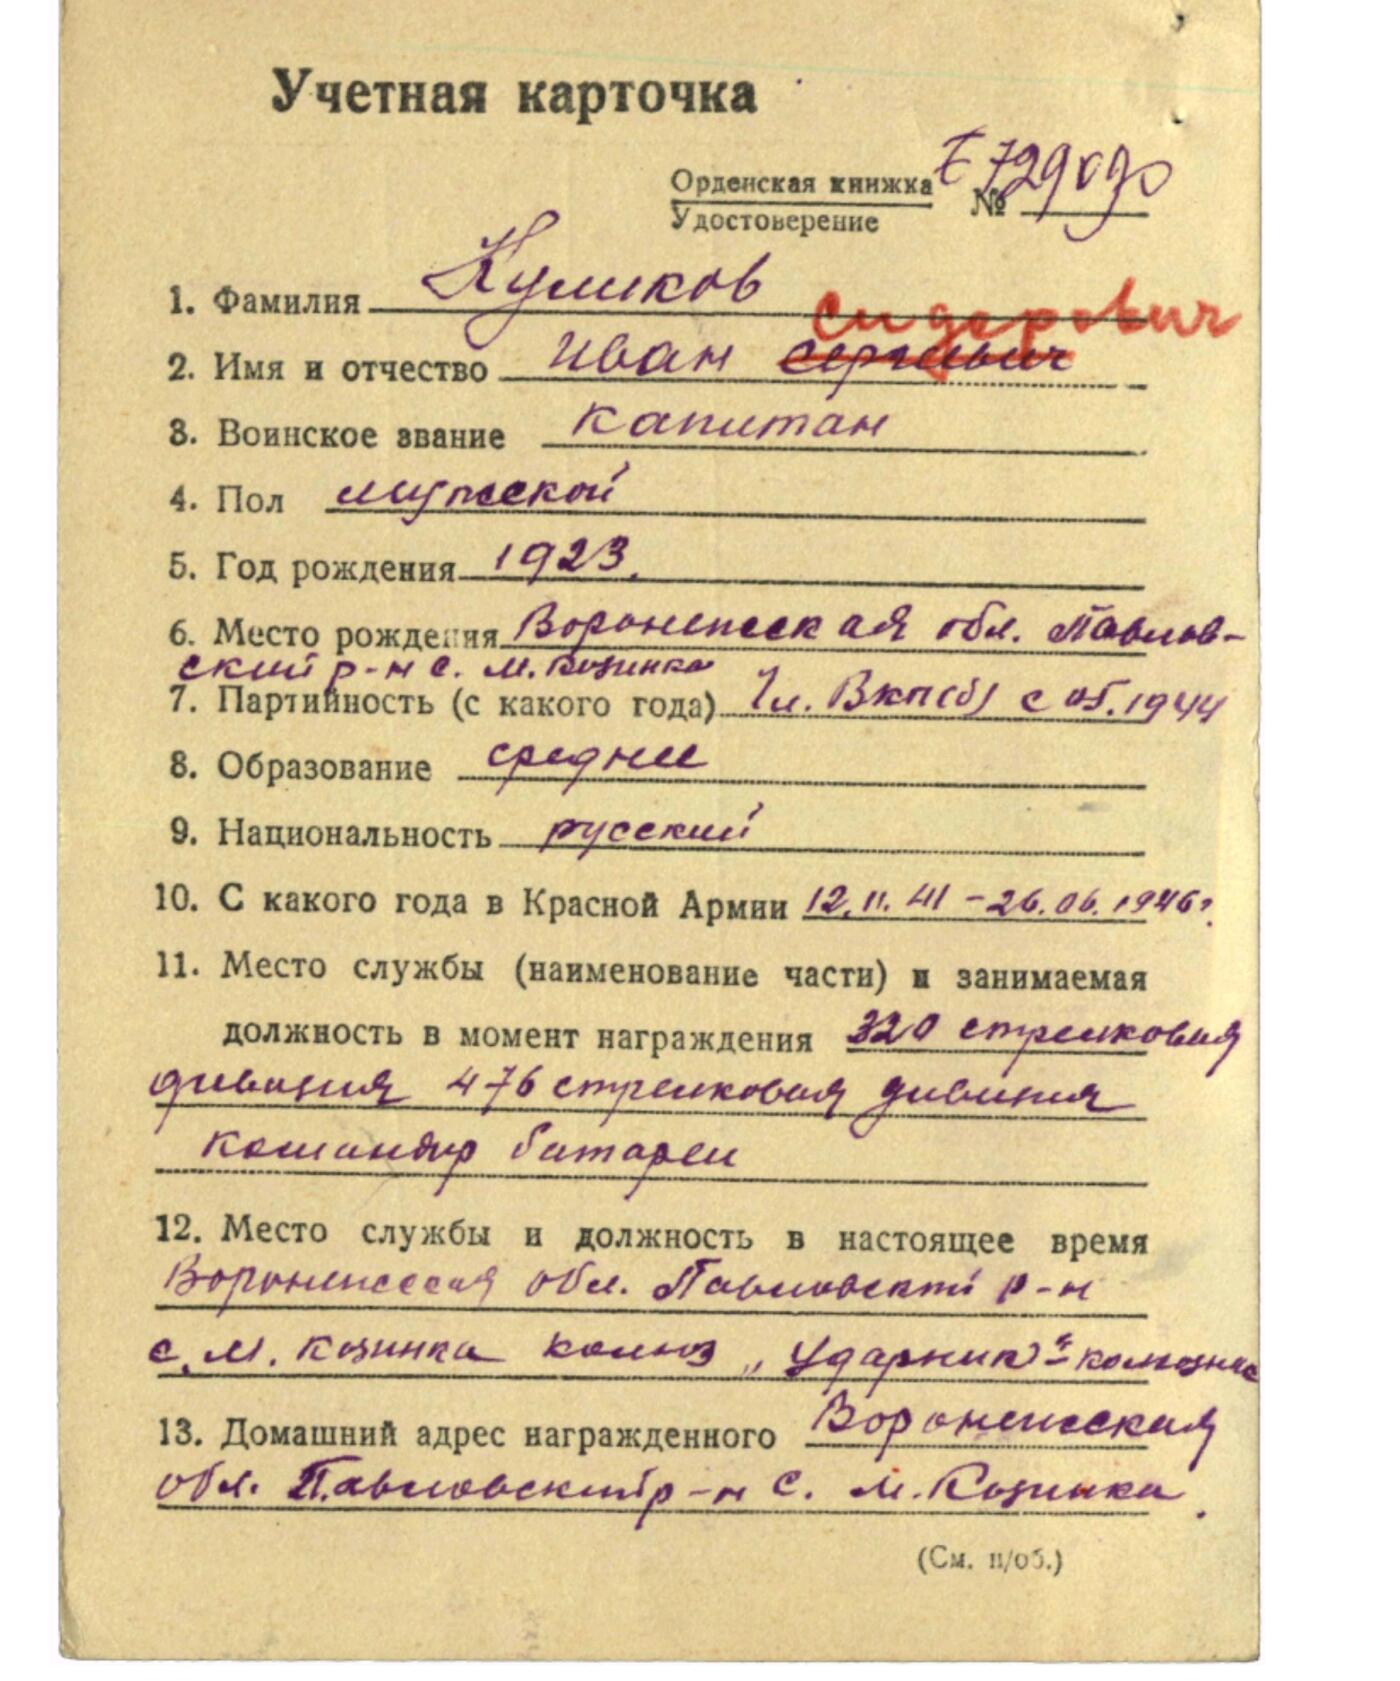 Учетная карточка
Орденская книжка
Удостоверение
№ Е 729090
1. Фамилия Куликов
Сидорович
2. Имя и отчество Иван Сергеевич
3. Воинское звание капитан
4. Пол мужской
5. Год рождения 1923.
6. Место рождения Воронежская обл. Павлов-
ский р-н с. М. Козинка
7. Партийность (с какого года) Чл. ВКП(б) с 05.1944
8. Образование среднее
9. Национальность русский
10. С какого года в Красной Армии 12.11.41 – 26.06.1946г.
11. Место службы (наименование части) и занимаемая
должность в момент награждения 320 стрелковая
дивизия 476 стрелковая дивизия
командир батареи
12. Место службы и должность в настоящее время
Воронежская обл. Павловский р-н
с. М. Козинка колхоз „Ударник“ - колхозник
13. Домашний адрес награжденного Воронежская
обл. Павловский р-н с. М. Козинка.
(См. н/об.)